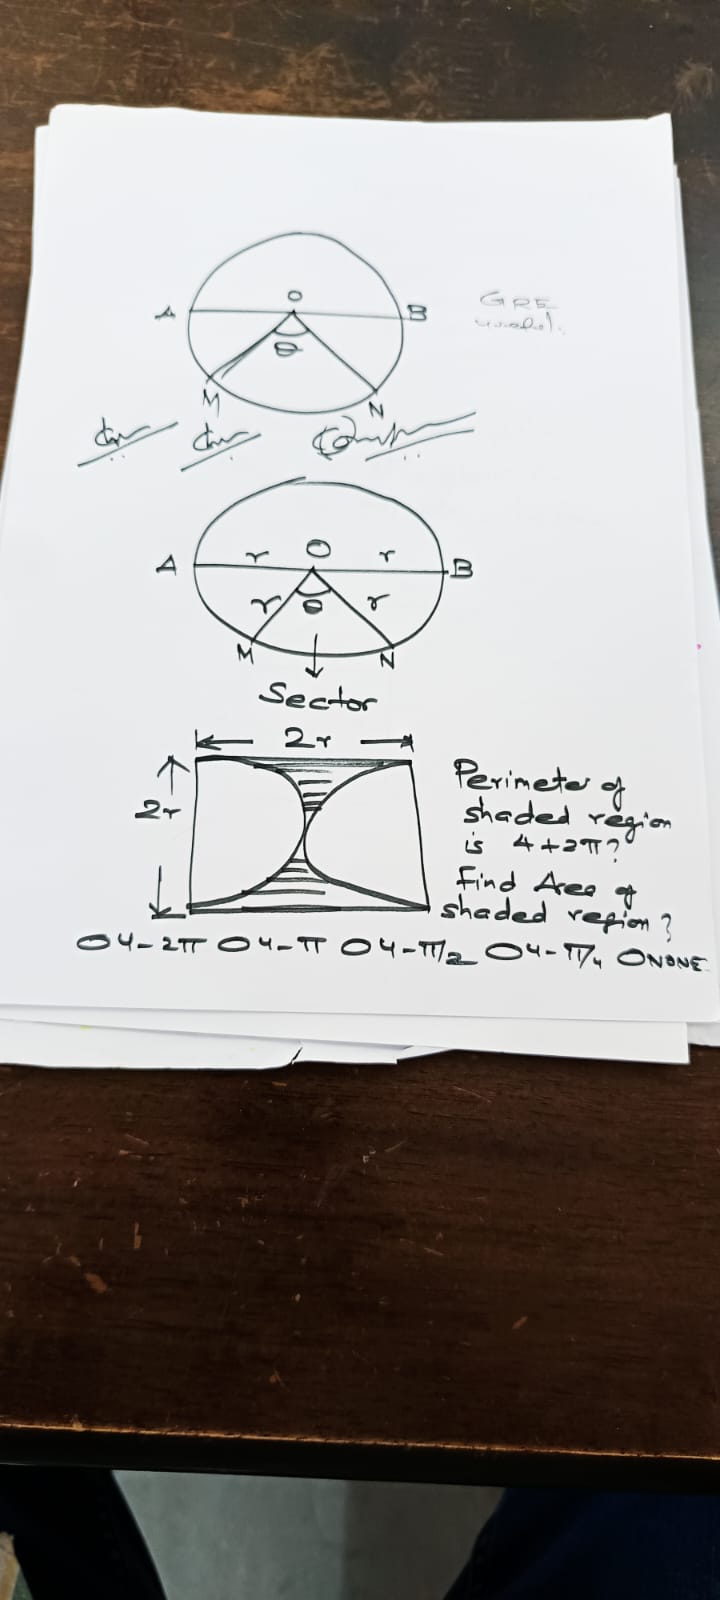 GRE
O
A B
θ
M N
O
A r r B
r θ r
M N
Sector
2r
2r
Perimeter of
shaded region
is 4+2π?
Find Area of
shaded region?
O 4-2π O 4-π O 4-π/2 O 4-π/4 O NONE